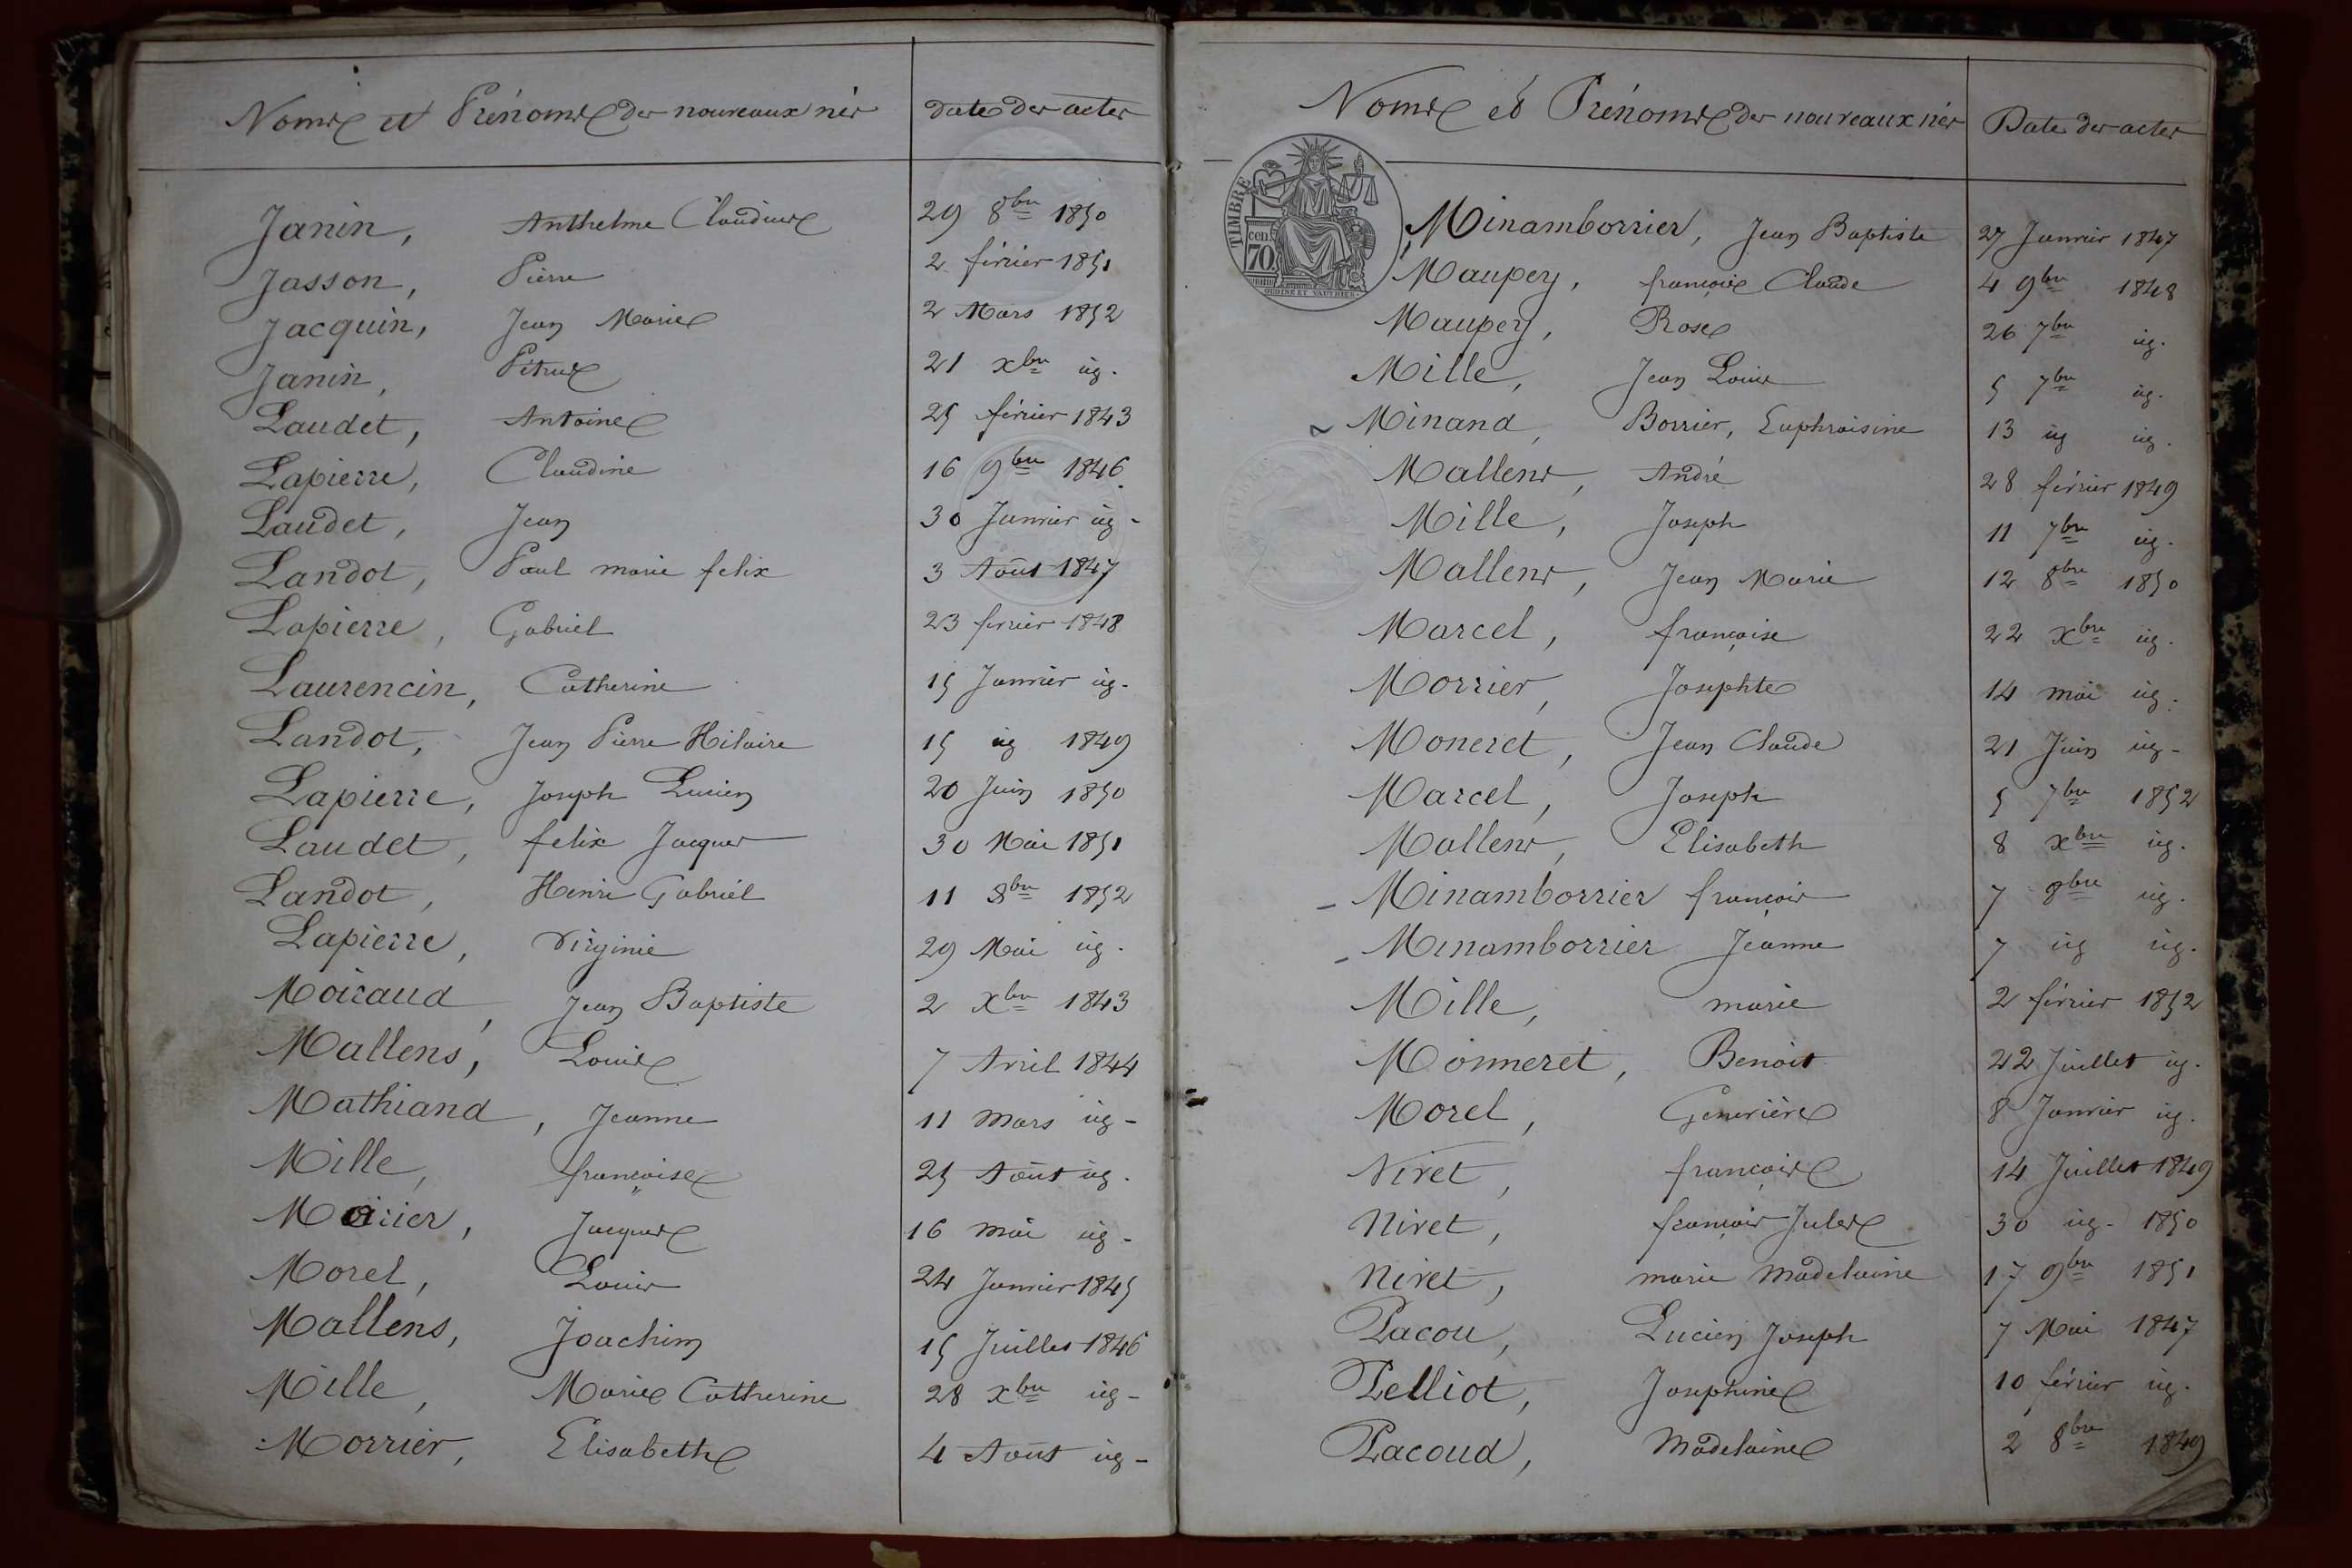 Noms et Prénoms des nouveaux nés date des actes
Janin, Anthelme Claudius 29 8bre 1850
Jasson, Pierre 2 février 1851
Jacquin, Jean Marie 2 Mars 1852
Janin, Pétrus 21 xbre ig.
Laudet, Antoine 25 février 1843
Lapierre, Claudine 16 9bre 1846
Laudet, Jean 30 Janvier ig -
Landot, Paul marie felix 3 Août 1847
Lapierre, Gabriel 23 fevrier 1848
Laurencin, Catherine 15 Janvier ig -
Landot, Jean Pierre Hilaire 15 ig 1849
Lapierre, Joseph Lucien 20 Juin 1850
Laudet, felix Jacques 30 Mai 1851
Landot, Henri Gabriel 11 8bre 1852
Lapierre, Virginie 29 Mai ig.
Moiraud, Jean Baptiste 2 Xbre 1843
Mallens, Louis 7 Avril 1844
Mathiand, Jeanne 11 Mars ig -
Mille, françoise 25 Août ig.
Jacques 16 Mai ig -
Morel, Louis 24 Janvier 1845
Mallens, Joachim 15 Juillet 1846
Mille, Marie Catherine 28 xbre ig -
Morrier, Elisabeth 4 Août ig -
Noms et Prénoms des nouveaux nés Date des actes
TIMBRE
cent.
70
OUDINÉ ET VAUTHIER
Minamborrier, Jean Baptiste 27 Janvier 1847
Maupey, françois Claude 4 9bre 1848
Maupey, Rose 26 7bre ig.
Mille, Jean Louis 5 7bre ig.
Minand, Borrier, Euphraisine 13 ig ig.
Mallens, André 28 février 1849
Mille, Joseph 11 7bre ig.
Mallens, Jean Marie 12 8bre 1850
Marcel, françoise 22 Xbre ig.
Morrier, Josephte 14 mai ig.
Moneret, Jean Claude 21 Juin ig -
Marcel, Joseph 5 7bre 1852
Mallens, Elisabeth 8 xbre ig.
- Minamborrier françois 7 9bre ig.
- Minamborrier Jeanne 7 ig ig.
Mille, marie 2 février 1852
Monneret, Benoit 22 Juillet ig.
Morel, Geneviève 8 Janvier ig.
Nivet, françois 14 Juillet 1849
Nivet, françois Jules 30 ig - 1850
Nivet, marie Madelaine 17 9bre 1851
Pacou, Lucien Joseph 7 Mai 1847
Pelliot, Josephine 10 février ig.
Pacoud, Madelaine 2 8bre 1849